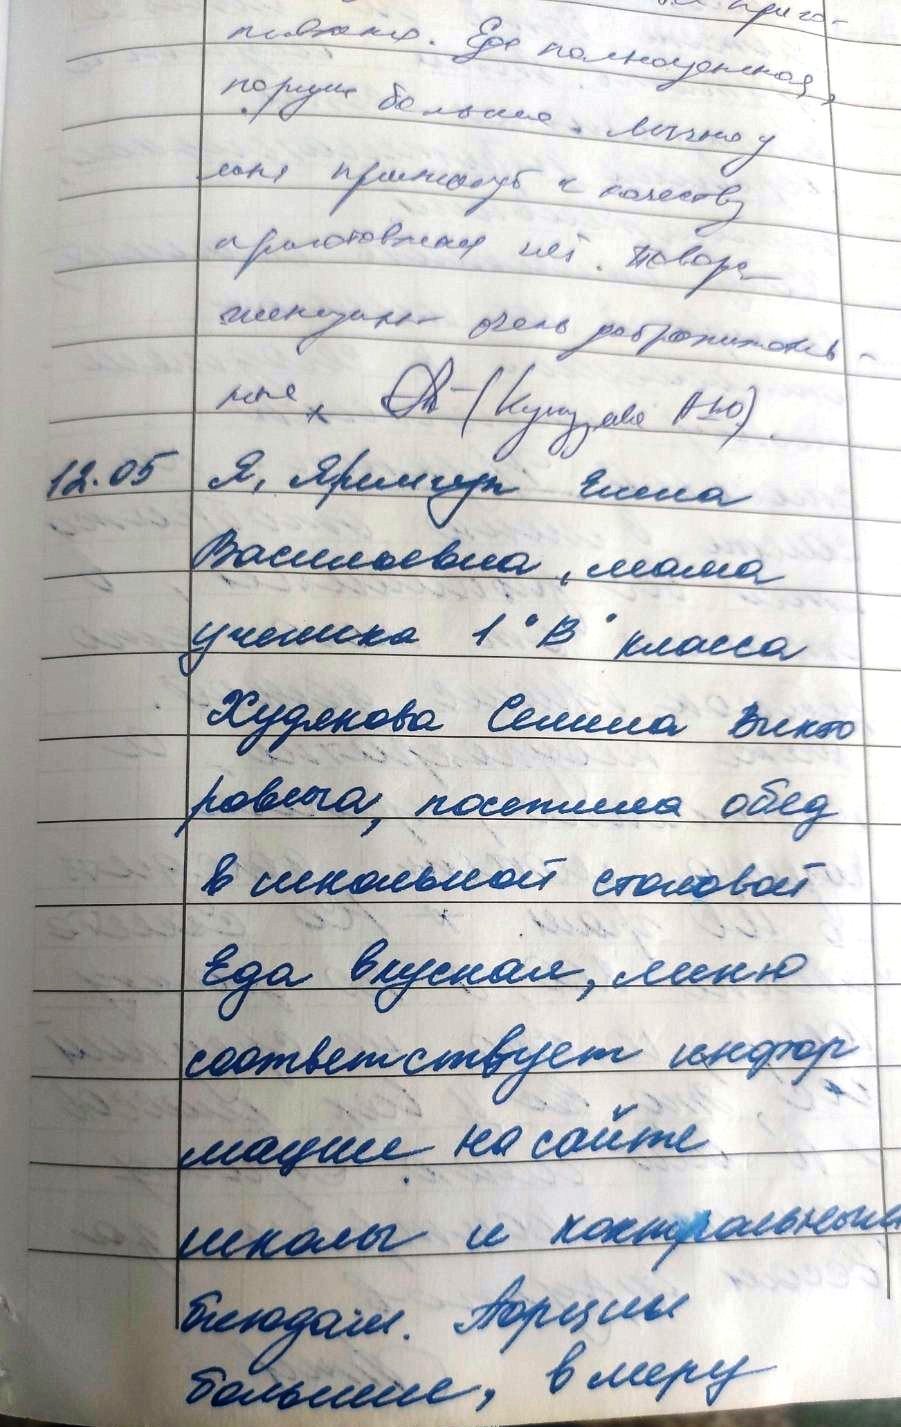 товления. Еда полноценная,
порции большие. Лично у
меня претензий к качеству
приготовления нет. Повара
женщины очень доброжелатель-
ные
12.05 Я, Яремчук Елена
Васильевна, мама
ученика 1 "В" класса
Худякова Семёна Викто
ровича, посетила обед
в школьной столовой
Еда вкусная, меню
соответствует инфор
мации на сайте
школы и контрольным
блюдам. Порции
большие, в меру